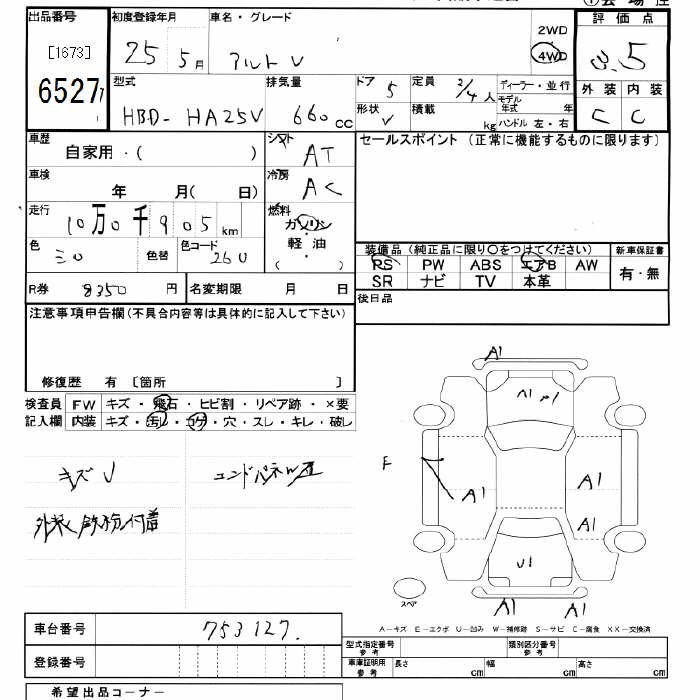 出品番号 初度登録年月 車名・グレード 評価点
[1673] 25 5月 アルト V 2WD 4WD 3.5
6527 型式 排気量 ドア 5 定員 2/4人 ディーラー・並行 外装 内装
HBD- HA25V 660cc 形状 V 積載 kg モデル年式 年 C C
ハンドル 左・右
車歴 自家用・( ) シフト AT セールスポイント (正常に機能するものに限ります)
車検 年 月( 日) 冷房 AC
走行 10万0千905km 燃料 ガソリン・軽油 ( ・ )
色 シロ 色替 色コード 26U 装備品 (純正品に限り○をつけてください) 新車保証書
PS PW ABS エアB AW 有・無
R券 8350円 名変期限 月 日 SR ナビ TV 本革
注意事項申告欄(不具合内容等は具体的に記入して下さい) 後日品
修復歴 有 〔箇所 〕
検査員 FW キズ・飛石・ヒビ割・リペア跡・×要
記入欄 内装 キズ・汚レ・コゲ・穴・スレ・キレ・破レ
キズ U エンドパネル
外装 鉄粉付着
A1
A1
E A1 A1
A1
U1
スペア A1 A1
A-キズ E-エクボ U-凹み W-補修跡 S-サビ C-腐食 XX-交換済
車台番号 753127.
型式指定番号 参考 類別区分番号 参考
登録番号 車庫証明用 参考 長さ cm 幅 cm 高さ cm
希望出品コーナー